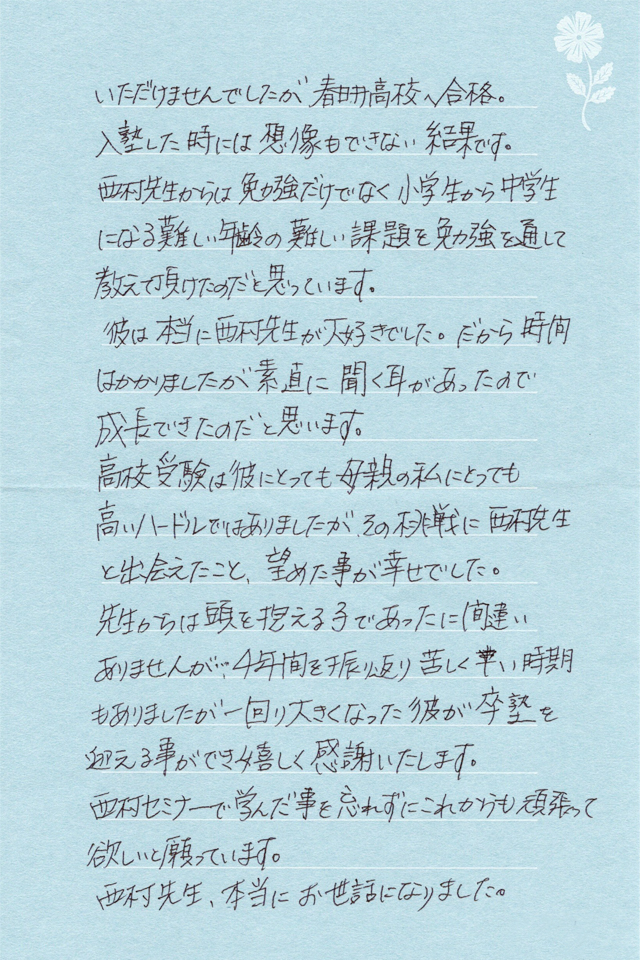 いただけませんでしたが 春日井高校へ合格。
入塾した時には 想像もできない 結果です。
西村先生からは 勉強だけでなく 小学生から 中学生
になる難しい年齢の難しい課題を勉強を通して
教えて頂けたのだと思っています。
彼は 本当に西村先生が大好きでした。だから 時間
はかかりましたが素直に 聞く耳があったので
成長できたのだと思います。
高校受験は彼にとっても 母親の私にとっても
高いハードルではありましたが、その挑戦に 西村先生
と出会えたこと、望めた事が幸せでした。
先生からは頭を抱える子であったに間違い
ありませんが… 4年間を振り返り 苦しく 辛い時期
もありましたが一回り大きくなった彼が卒塾を
迎える事ができ嬉しく感謝いたします。
西村セミナーで学んだ事を忘れずにこれからも頑張って
欲しいと願っています。
西村先生、本当に お世話になりました。